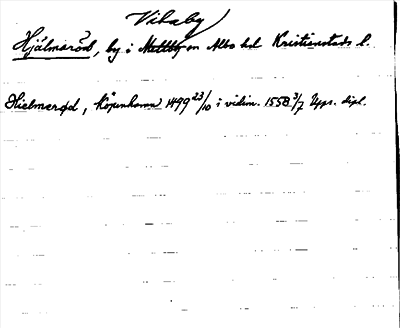 Vikaby
Hjälmaröd, by i en Albo hd Kristianstads l.
Hielmerød, Köpenhamn 1499 23/10 i vidim. 1558 3/7 Upps. dipl.